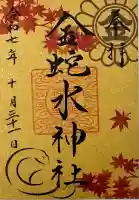 令和七年 十月三十一日
金蛇水神社